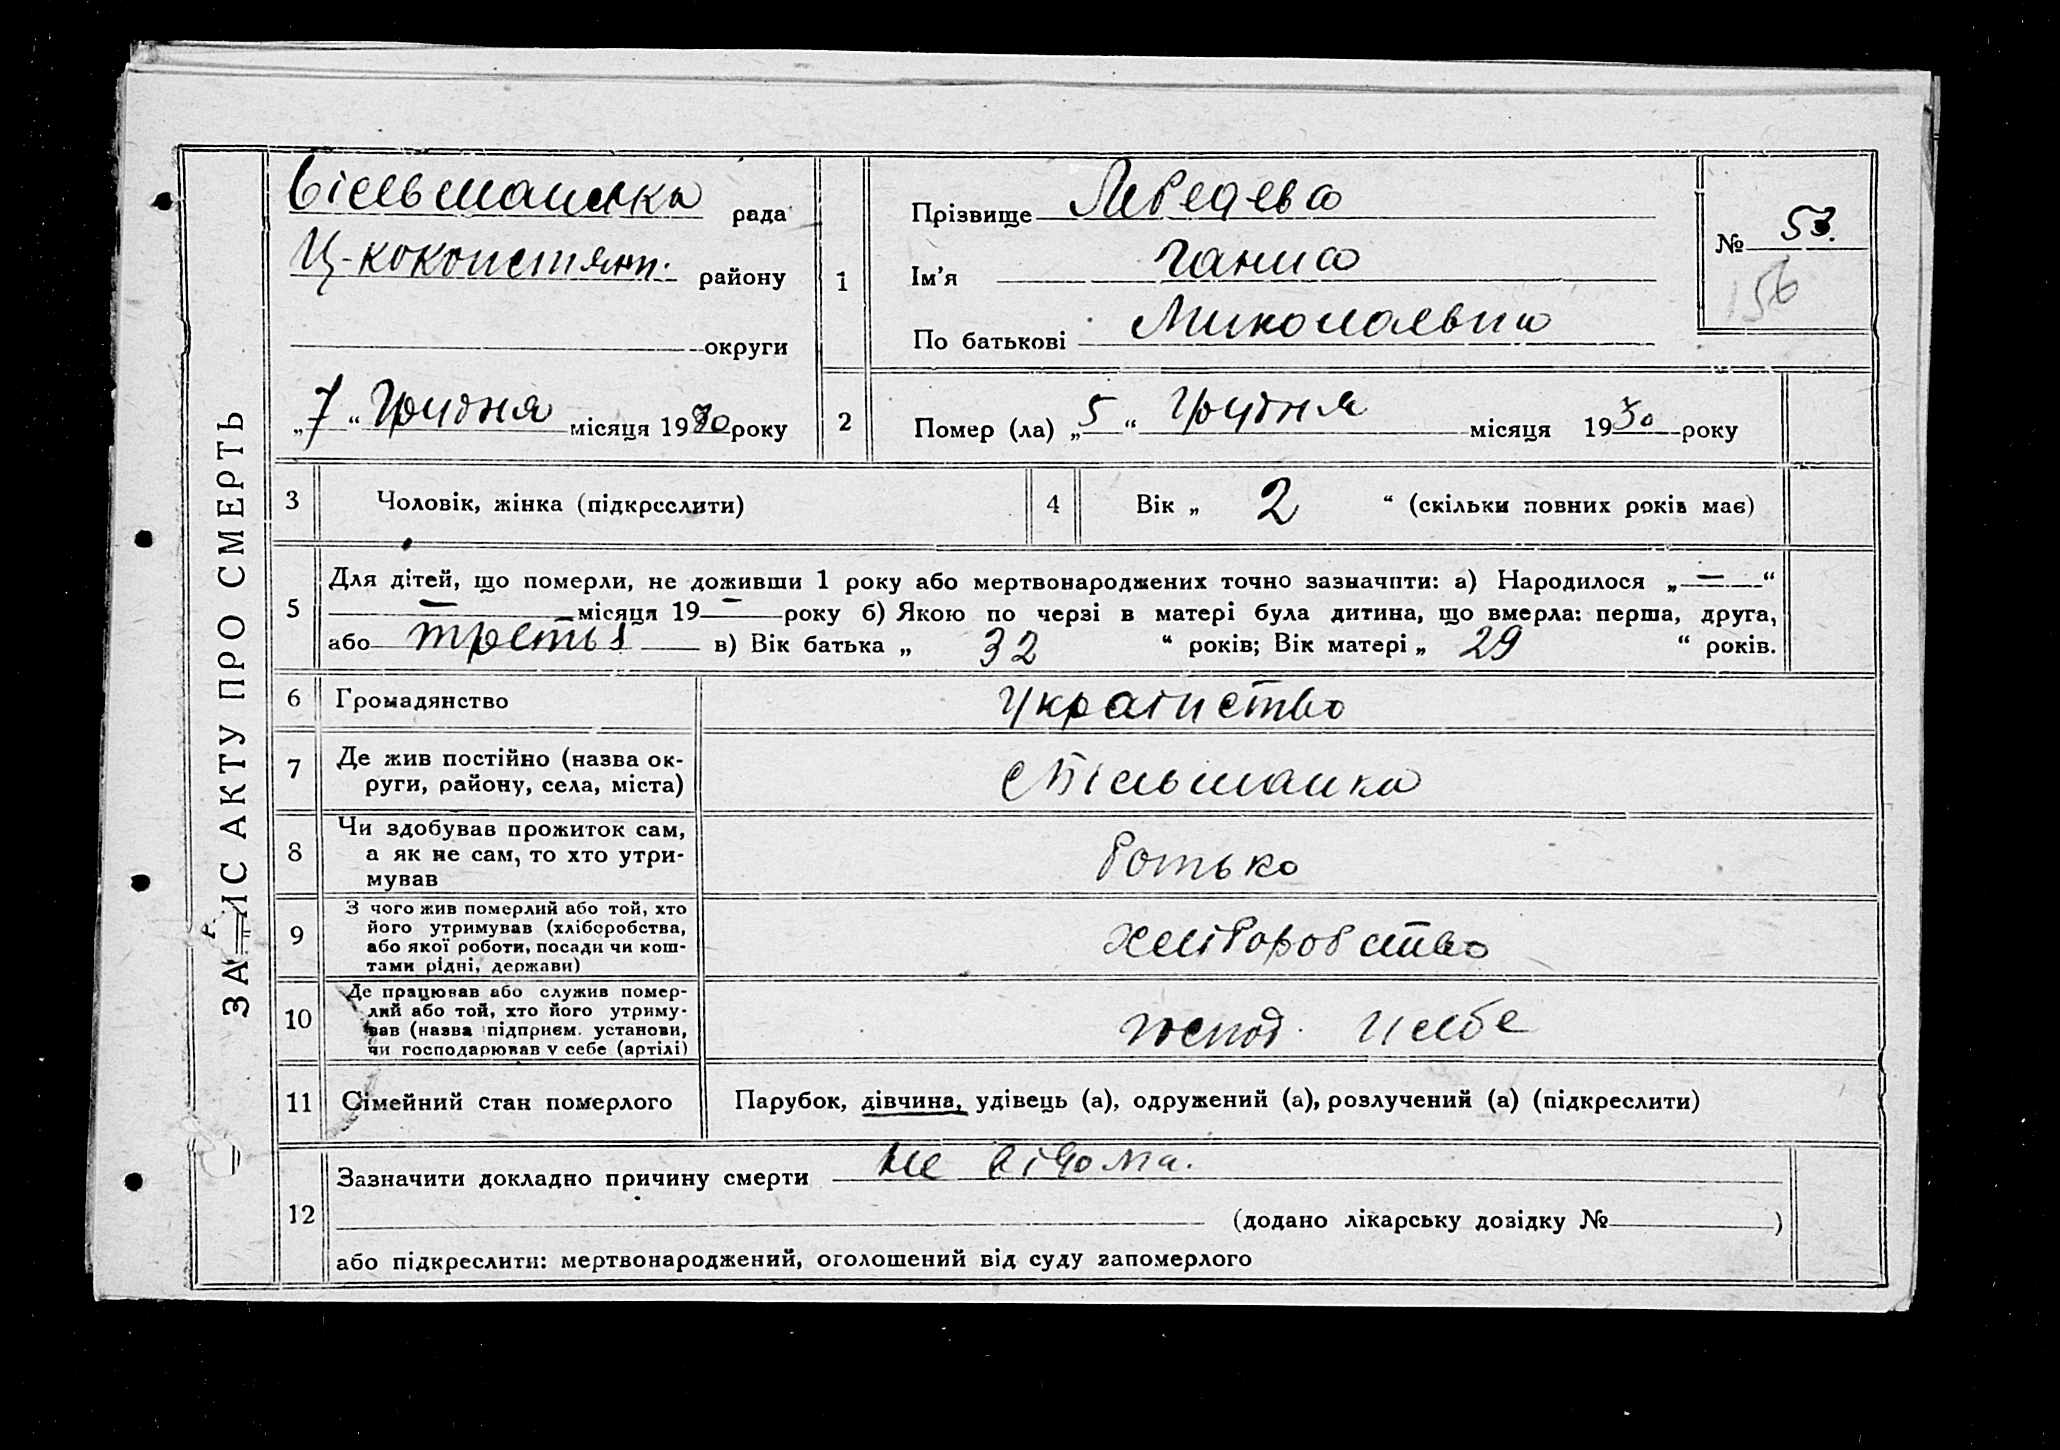 ЗАПИС АКТУ ПРО СМЕРТЬ
Вільшанська рада
району
округи
„7“ Грудня місяця 1930 року
1
Прізвище Лебедева
Ім'я Ганна
По батькові Миколаевна
№ 53.
156
2
Помер (ла) „5“ Грудня місяця 1930 року
3 Чоловік, жінка (підкреслити)
4 Вік „ 2 “ (скільки повних років має)
5 Для дітей, що померли, не доживши 1 року або мертвонароджених точно зазначити: а) Народилося „—“
— місяця 19— року б) Якою по черзі в матері була дитина, що вмерла: перша, друга,
або третья в) Вік батька „ 32 “ років; Вік матері „ 29 “ років.
6 Громадянство
7 Де жив постійно (назва ок-
руги, району, села, міста)
с Вільшанка
8 Чи здобував прожиток сам,
а як не сам, то хто утри-
мував
батько
9 З чого жив померлий або той, хто
його утримував (хліборобства,
або якої роботи, посади чи кош-
тами рідні, держави)
хліборобство
10 Де працював або служив помер-
лий або той, хто його утриму-
вав (назва підприєм. установи,
чи господарював у себе (артілі)
господ. у себе
11 Сімейний стан померлого
Парубок, дівчина, удівець (а), одружений (а), розлучений (а) (підкреслити)
12 Зазначити докладно причину смерти не відома.
(додано лікарську довідку № )
або підкреслити: мертвонароджений, оголошений від суду запомерлого